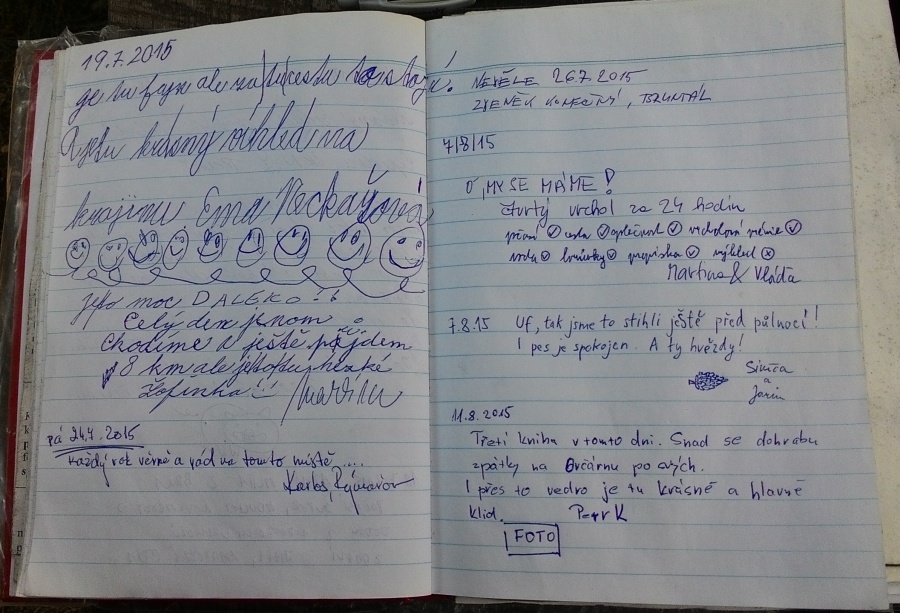 19.7.2015
je tu fajn ale za tu cestu to stojí!
Je tu krásný výhled na
krajinu. Ema
je to moc DALEKO!!
Celý den jenom
chodíme a ještě půjdem
8 km ale je to tu hezké
Žofinka!! Martin
pá 24.7.2015
každý rok věrně a rád na tomto místě....
Karlos, Rýmařov
NEDĚLE 26.7.2015
ZDENĚK KONEČNÝ, BRUNTÁL
7/8/15
O, MY SE MÁME!
čtvrtý vrchol za 24 hodin
pivní cesta společnost vrcholová prémie
voda propiska výhled
Martina & Vláďa
7.8.15 Uf, tak jsme to stihli ještě před půlnocí!
I pes je spokojen. A ty hvězdy!
a
11.8.2015
Třetí kniha v tomto dni. Snad se dohrabu
zpátky na Ovčárnu po svých.
I přes to vedro je tu krásně a hlavně
klid. Petr K
FOTO